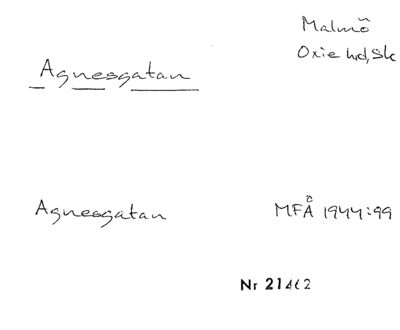 Malmö
Oxie hd, Sk
Agnesgatan
Agnesgatan
MFÅ 1944:99
Nr